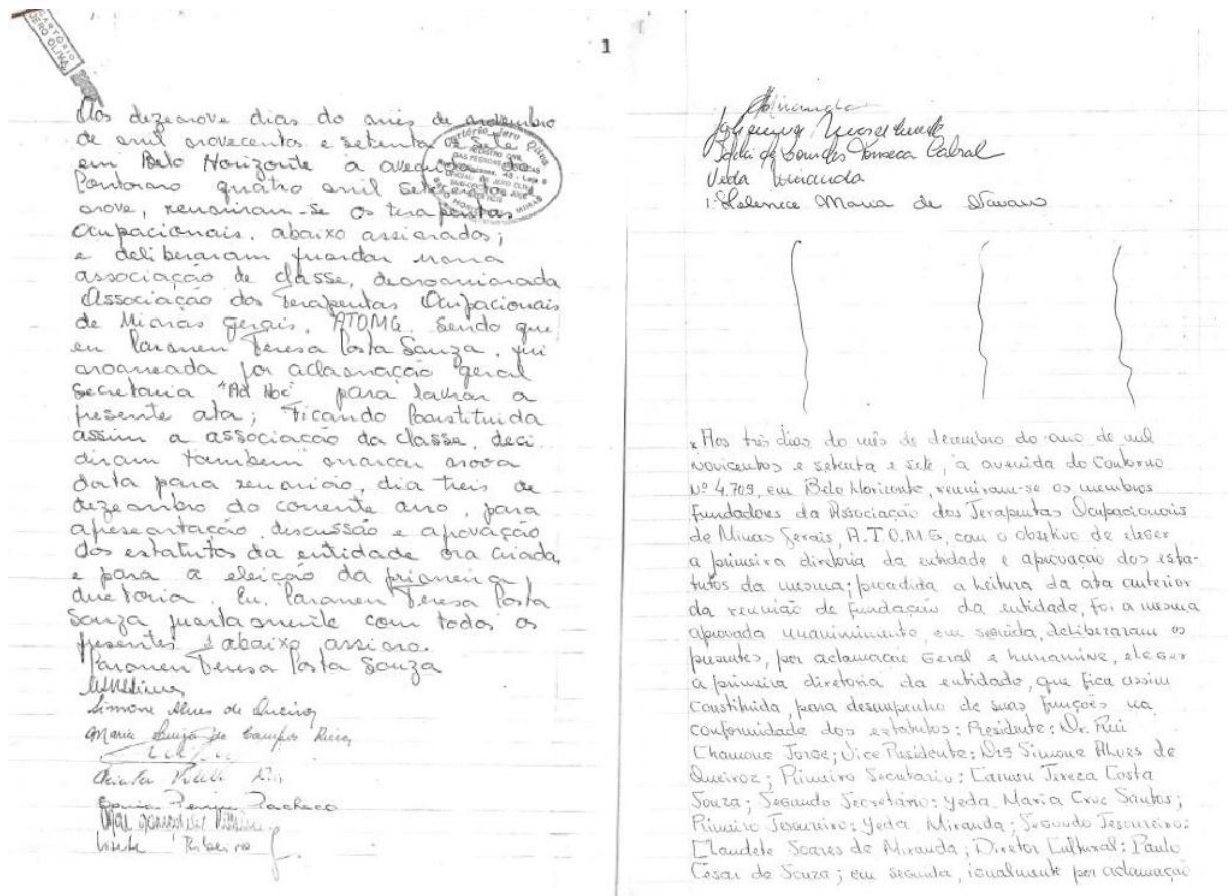 CARTÓRIO
JERO OLIVA
1
Aos dezenove dias do mês de novembro
de mil novecentos e setenta e sete
em Belo Horizonte à avenida do
Contorno quatro mil setecentos e
nove, reuniram-se os terapeutas
Ocupacionais, abaixo assinados;
e deliberaram fundar uma
associação de classe, denominada
Associação dos Terapeutas Ocupacionais
de Minas Gerais, ATOMG. Sendo que
eu Carmen Teresa Costa Souza, fui
nomeada por aclamação geral
Secretaria "Ad Hoc" para lavrar a
presente ata; Ficando Constituida
assim a associação da classe, deci
diram também marcar nova
data para reunião, dia treis de
dezembro do corrente ano, para
apresentação, discussão e aprovação
dos estatutos da entidade ora criada
e para a eleição da primeira
diretoria. Eu, Carmen Teresa Costa
Souza juntamente com todos os
presentes abaixo assino.
Carmen Teresa Costa Souza
Simone Alves de Queiroz
Maria de Campos
Pacheco
Ribeiro
de Lourdes Fonseca Cabral
Yeda Miranda
Helenice Maria de
Aos três dias do mês de dezembro do ano de mil
novicentos e setenta e sete, à avenida do Contorno
Nº 4.709, em Belo Horizonte, reuniram-se os membros
fundadores da Associação dos Terapeutas Ocupacionais
de Minas Gerais, A.T.O.M.G, com o objetivo de eleger
a primeira diretoria da entidade e aprovação dos esta-
tutos da mesma; procedida a leitura da ata anterior
da reunião de fundação da entidade, foi a mesma
aprovada unanimimente, em seguida, deliberaram os
presentes, por aclamação Geral e hunamine, eleger
a primeira diretoria da entidade, que fica assim
Constituida, para desempenho de suas funções na
conformidade dos estatutos: Presidente: Dr. Rui
Chamone Jorge; Vice Presidente: Drª Simone Alves de
Queiroz; Primeiro Secretario: Carmen Tereza Costa
Souza; Segundo Secretário: Yeda Maria Cruz Santos;
Primeiro Tesoureiro: Yeda Miranda; Segundo Tesoureiro:
Claudete Soares de Miranda; Diretor Cultural: Paulo
César de Souza; em seguida, igualmente por aclamação